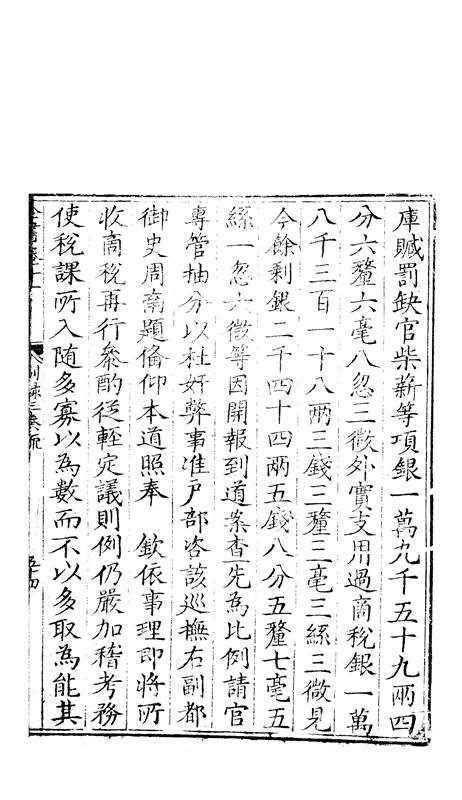 庫贓罰缺官柴薪等項銀一萬九千五十九兩四
分六釐六毫八忽三微外實支用過商稅銀一萬
八千三百一十八兩三錢三釐三毫三絲三微見
今餘剩銀二千四十四兩五錢八分五釐七毫五
絲一忽六微等因開報到道案查先為比例請官
專管抽分以杜奸弊事准戶部咨該巡撫右副都
御史周南題俻仰本道照奉　欽依事理即將所
收商稅再行叅酌從輕定議則例仍嚴加稽考務
使稅課所入隨多寡以為數而不以多取為能其